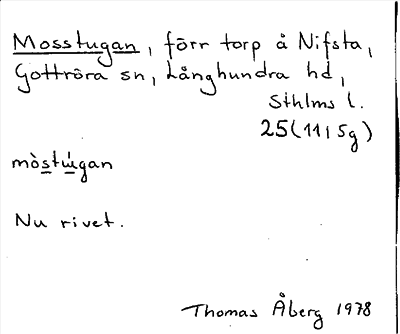 Mosstugan, förr torp å Nifsta,
Gottröra sn, Långhundra hd,
Sthlms l.
25(11i5g)
mòstúgan
Nu rivet.
Thomas Åberg 1978